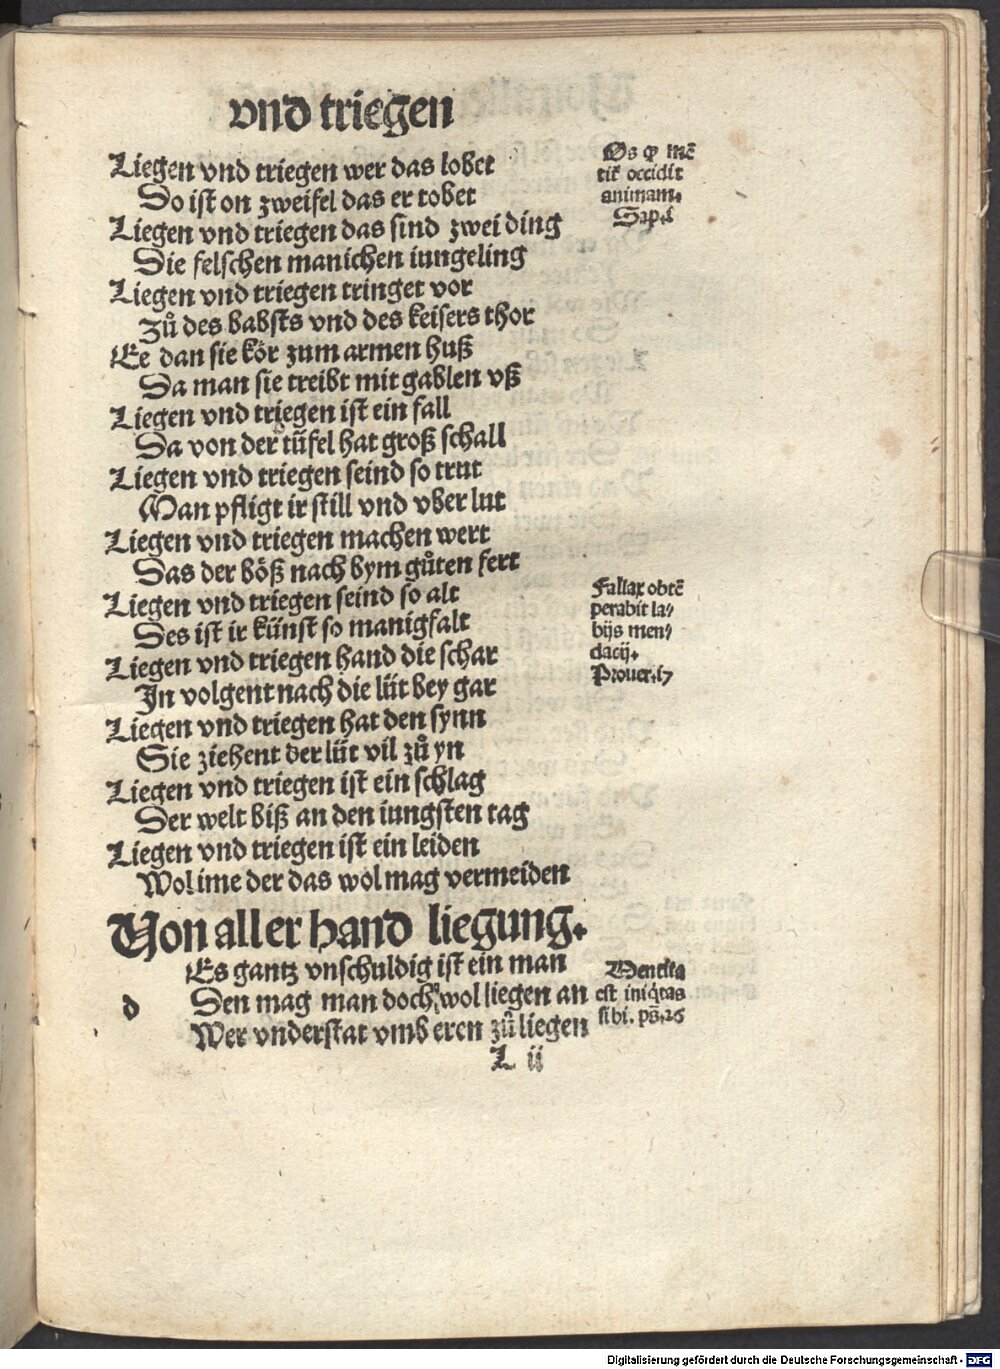 vnd triegen
Liegen vnd triegen wer das lobet
So ist on zweifel das er tobet
Liegen vnd triegen das sind zwei ding
Die felschen manichen iungeling
Liegen vnd triegen tringet vor
Zů des babsts vnd des keisers thor
Ee dan sie kör zum armen huß
Da man sie treibt mit gablen vß
Liegen vnd triegen ist ein fall
Da von der tüfel hat groß schall
Liegen vnd triegen seind so trut
Man pfligt ir still vnd vber lut
Liegen vnd triegen machen wert
Das der böß nach bym gůten fert
Liegen vnd triegen seind so alt
Des ist ir künst so manigfalt
Liegen vnd triegen hand die schar
In volgent nach die lüt bey gar
Liegen vnd triegen hat den synn
Sie ziehent der lüt vil zů yn
Liegen vnd triegen ist ein schlag
Der welt biß an den iungsten tag
Liegen vnd triegen ist ein leiden
Wol ime der das wol mag vermeiden
Os ꝙ mē
tiť occidit
animam.
Sap.i
Fallax obtē
perabit la⸗
bijs men⸗
dacij.
Prouer.17
Von aller hand liegung.
Es gantz vnschuldig ist ein man
d
Den mag man doch wol liegen an
Wer vnderstat vmb eren zů liegen
Mentita
est iniq̇tas
sibi. ps.26
L ii
Digitalisierung gefördert durch die Deutsche Forschungsgemeinschaft - DFG